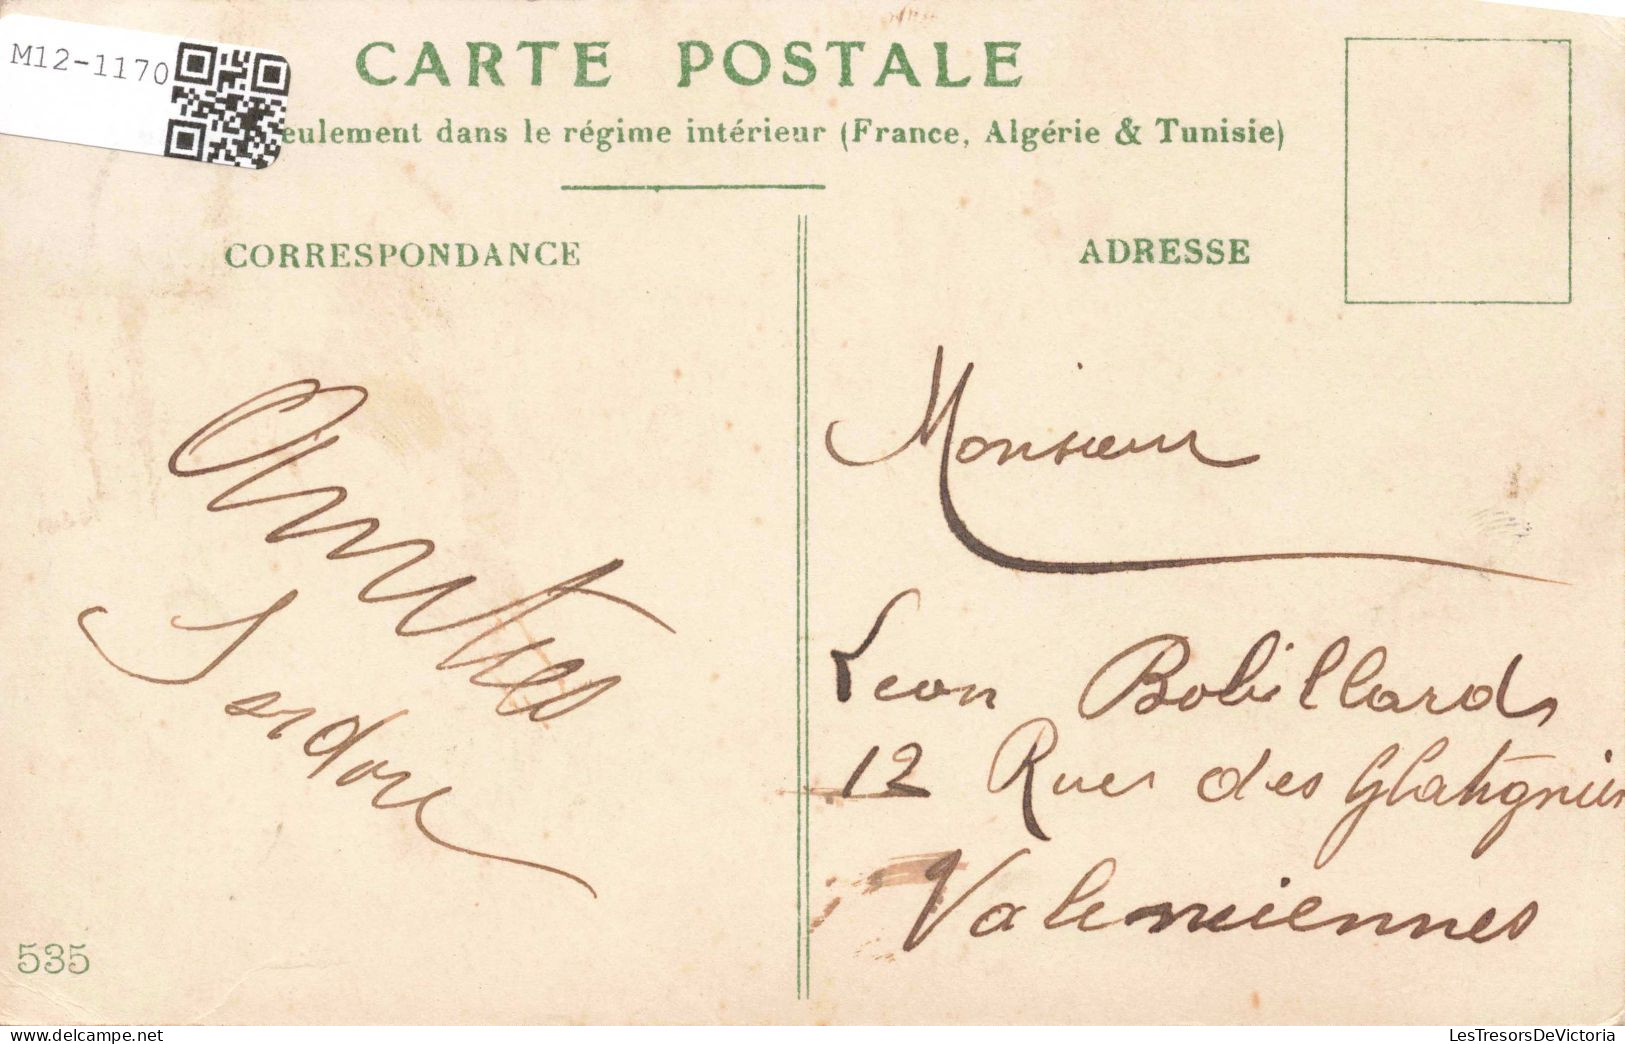 M12-1170
CARTE POSTALE
eulement dans le régime intérieur (France, Algérie & Tunisie)
CORRESPONDANCE
Amitiés
Isidore
ADRESSE
Monsieur
Leon Bobillard
12 Rue des Glatignies
Valenciennes
535
LesTresorsDeVictoria